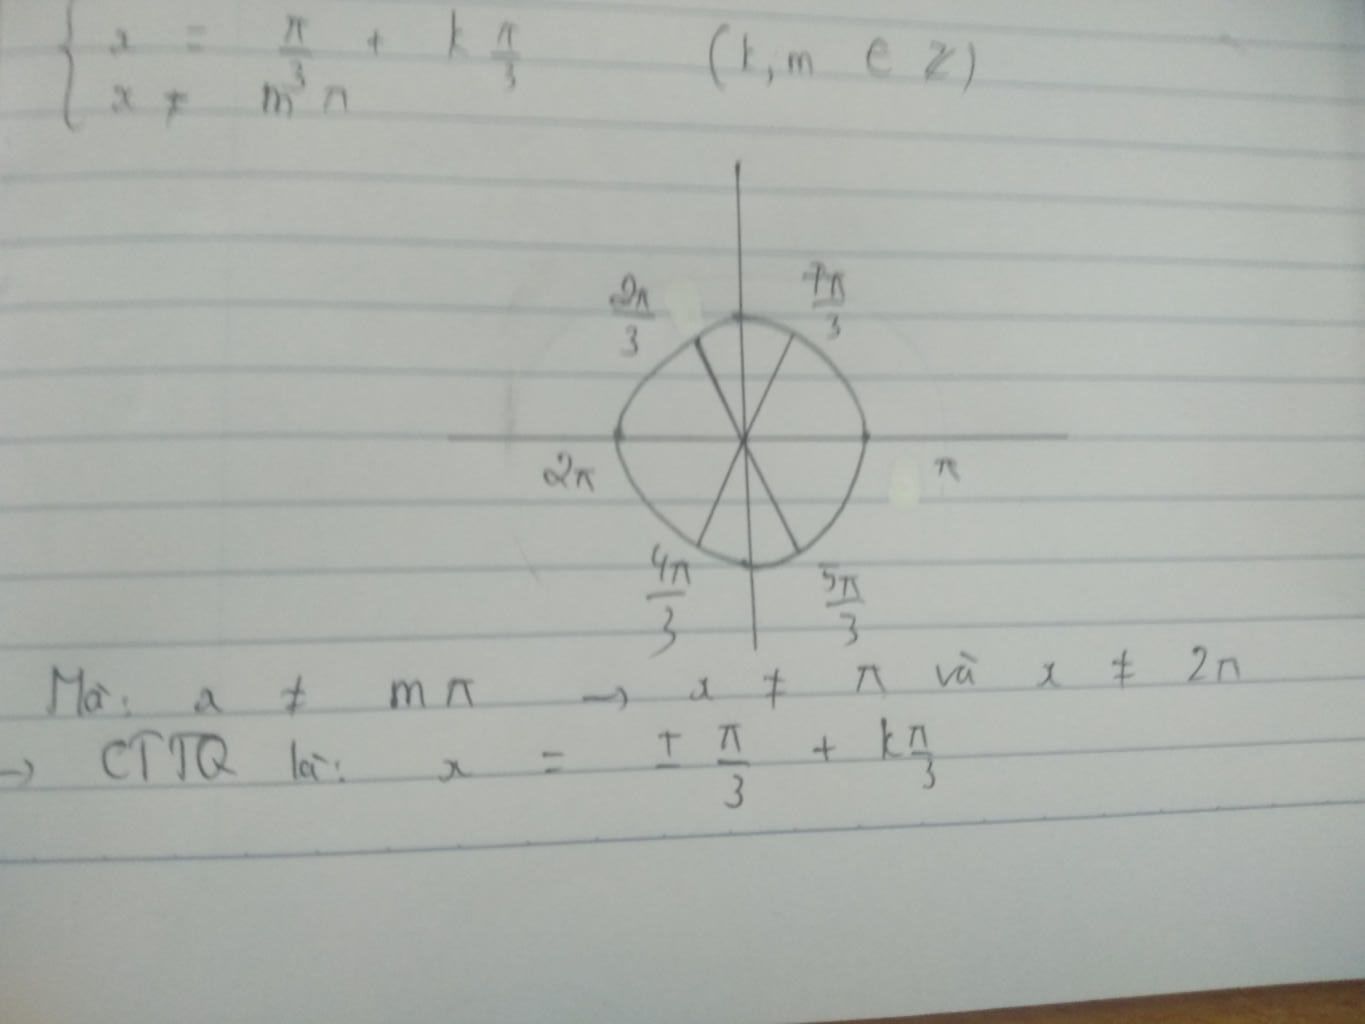 x = π/3 + k π/3 (k, m ∈ Z)
x ≠ m π
2π/3 7π/3
2π π
4π/3 5π/3
Mà: x ≠ m π → x ≠ π và x ≠ 2π
→ CTTQ là: x = ± π/3 + kπ/3